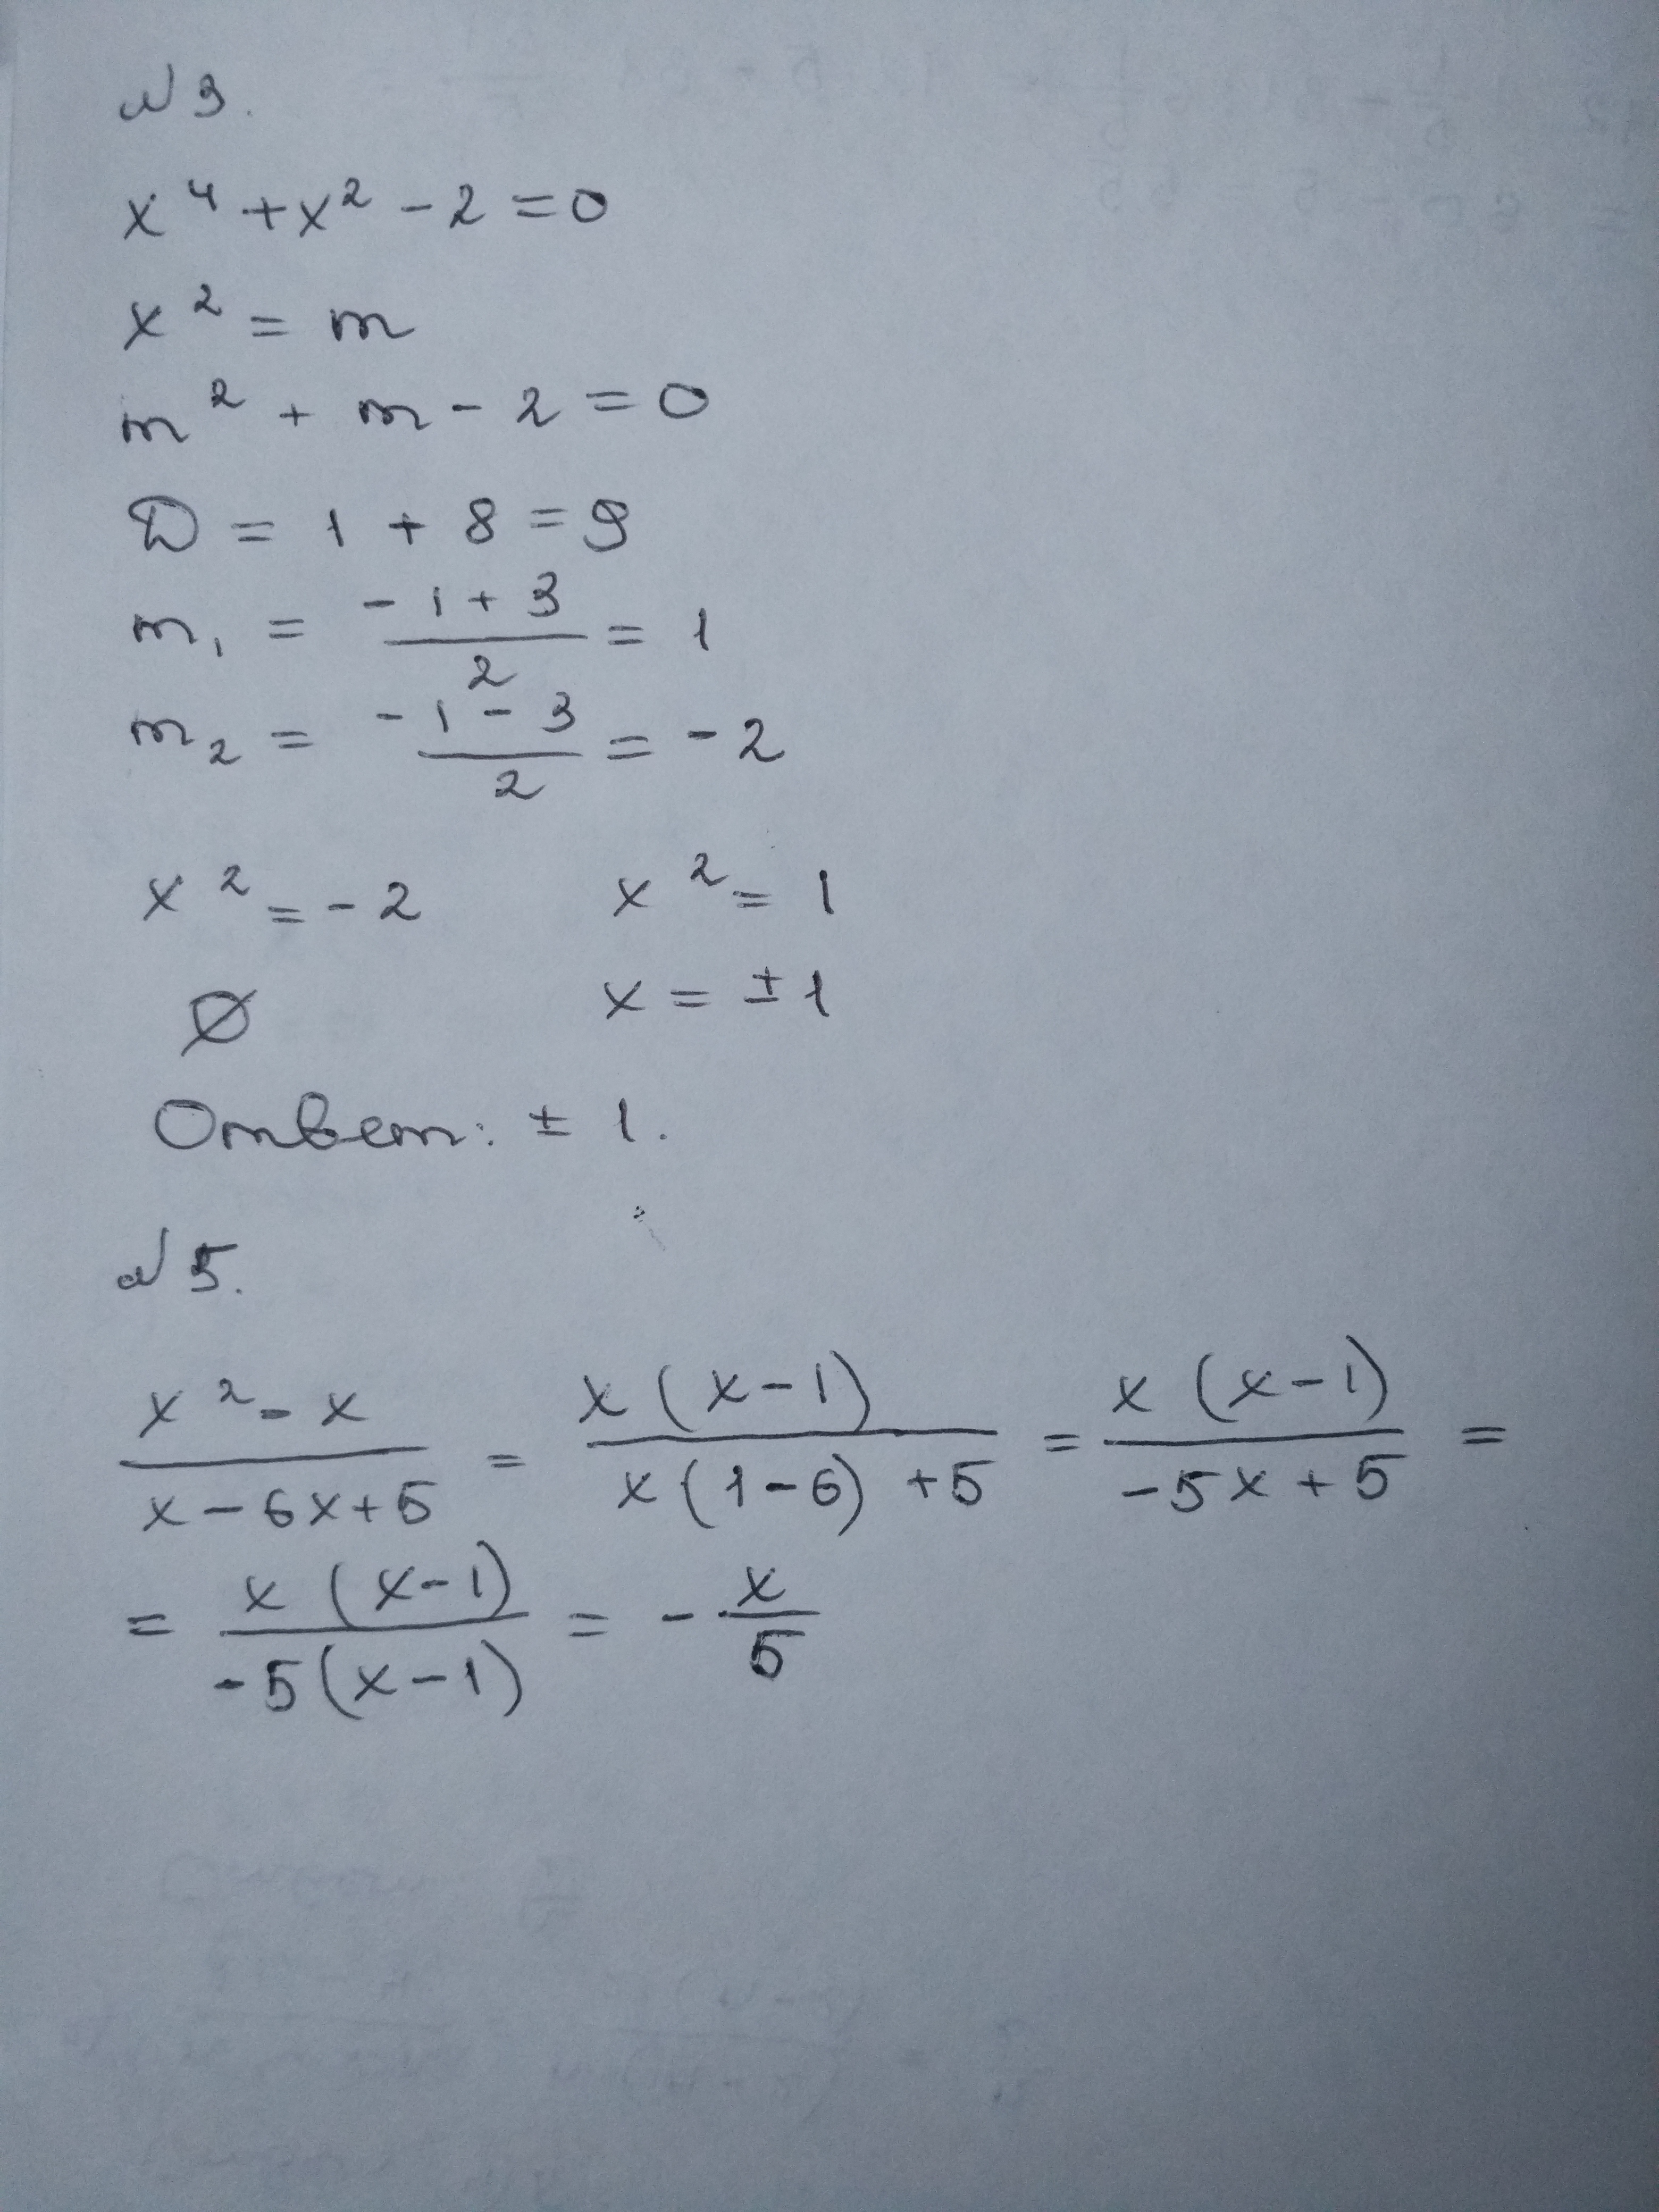 №3.
x⁴ + x² - 2 = 0
x² = m
m² + m - 2 = 0
D = 1 + 8 = 9
m₁ = (-1+3)/2 = 1
m₂ = (-1-3)/2 = -2
x² = -2 x² = 1
∅ x = ±1
Ответ: ± 1.
№5.
(x² - x)/(x - 6x + 5) = (x(x-1))/(x(1-6)+5) = (x(x-1))/(-5x+5) =
= (x(x-1))/(-5(x-1)) = - x/5